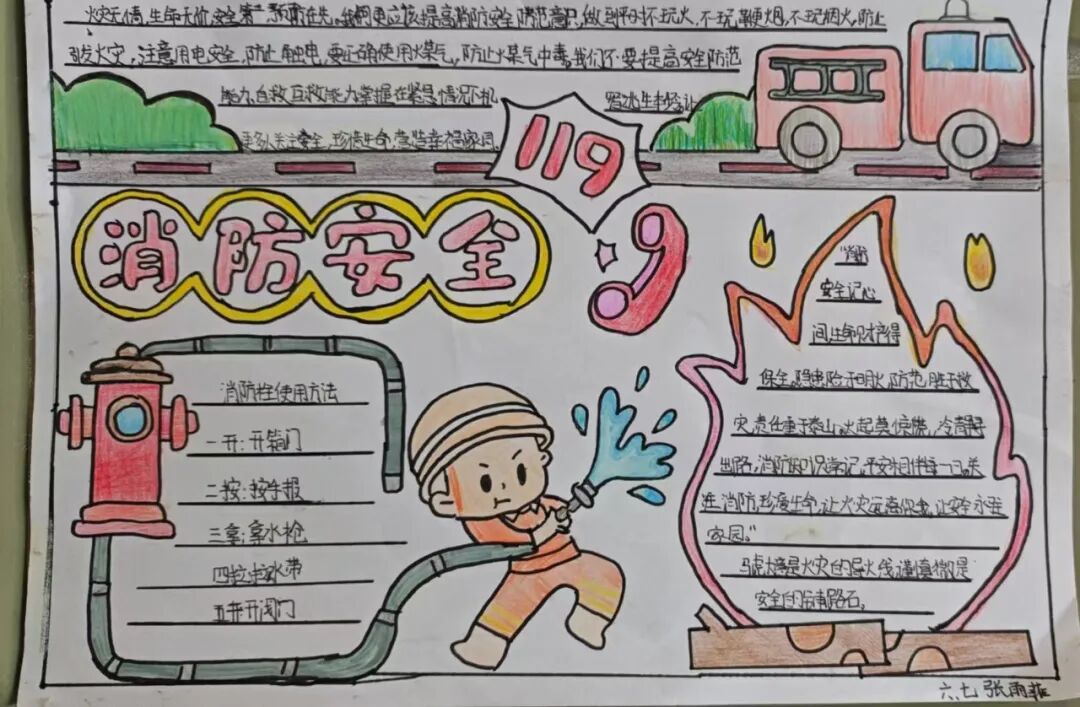 火灾无情,生命无价,安全第一,预防在先。我们更应该提高消防安全防范意识,做到平时不玩火,不玩鞭烟,不玩烟火,防止
引发火灾,注意用电安全,防止触电,要正确使用煤气,防止煤气中毒。我们不要提高安全防范
能力,自救互救能力掌握在紧急情况下机
更多关注安全,珍惜生命,营造幸福家园。
119
消防安全
消防栓使用方法
一开:开箱门
二按:按手报
三拿:拿水枪
四拉:拉水带
五开:开阀门
"消防
安全记心
间,生命财产得
保全。隐患险于明火,防范胜于救
灾,责任重于泰山。火起莫惊慌,冷静寻
出路,消防知识常记,平安相伴每一日。关
注消防,珍爱生命,让火灾远离你我,让安全永驻
家园。"
马虎大意是火灾的导火线,谨慎细是
安全的铺路石。
六、七 张雨菲